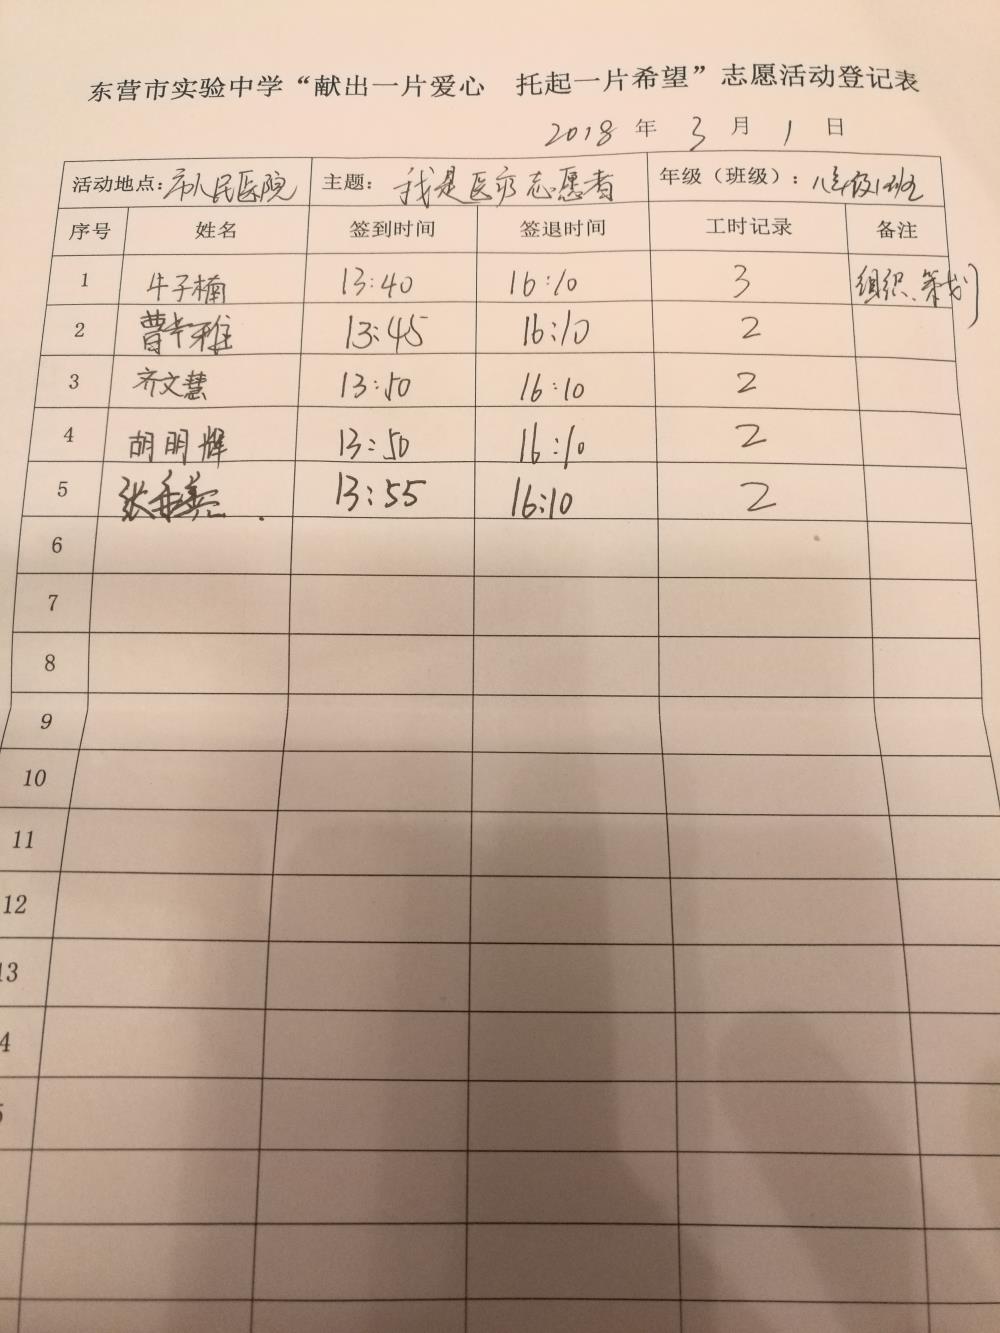 东营市实验中学“献出一片爱心 托起一片希望”志愿活动登记表
2018 年 3 月 1 日
活动地点: 市人民医院 主题: 我是医疗志愿者 年级（班级）: 八年级12班
序号 姓名 签到时间 签退时间 工时记录 备注
1 牛子楠 13:40 16:10 3 组织、策划
2 曹 雅 13:45 16:10 2
3 齐文慧 13:50 16:10 2
4 胡明辉 13:50 16:10 2
5 张 13:55 16:10 2
6
7
8
9
10
11
12
13
4
5